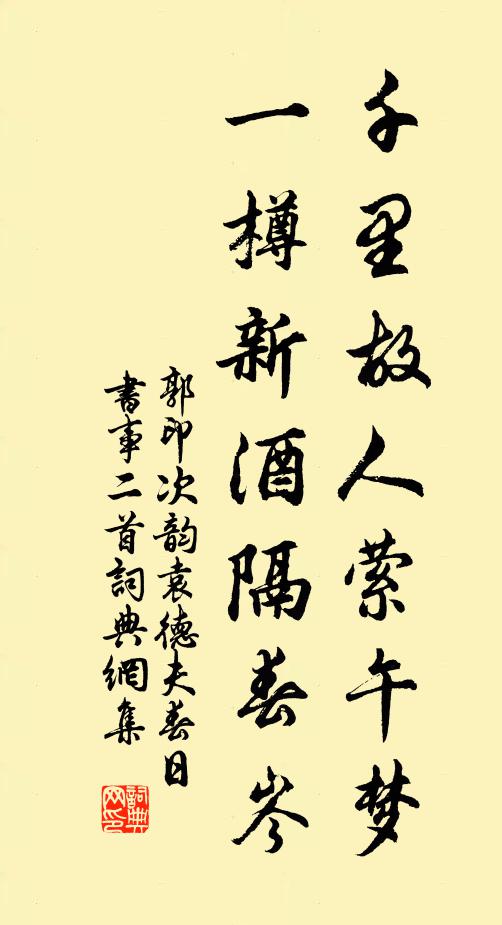 千里故人萦午梦
一樽新酒隔春岑
郭印次韵袁德夫春日
書事二首詞典網集
詞典網印